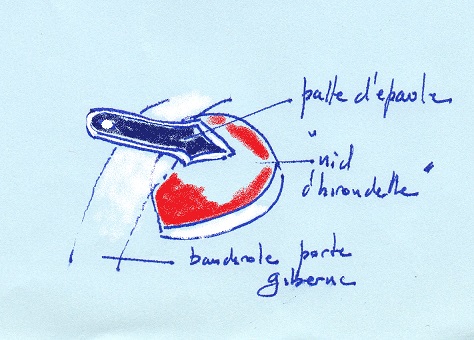 patte d'épaule
" nid
d'hirondelle "
banderole porte
giberne